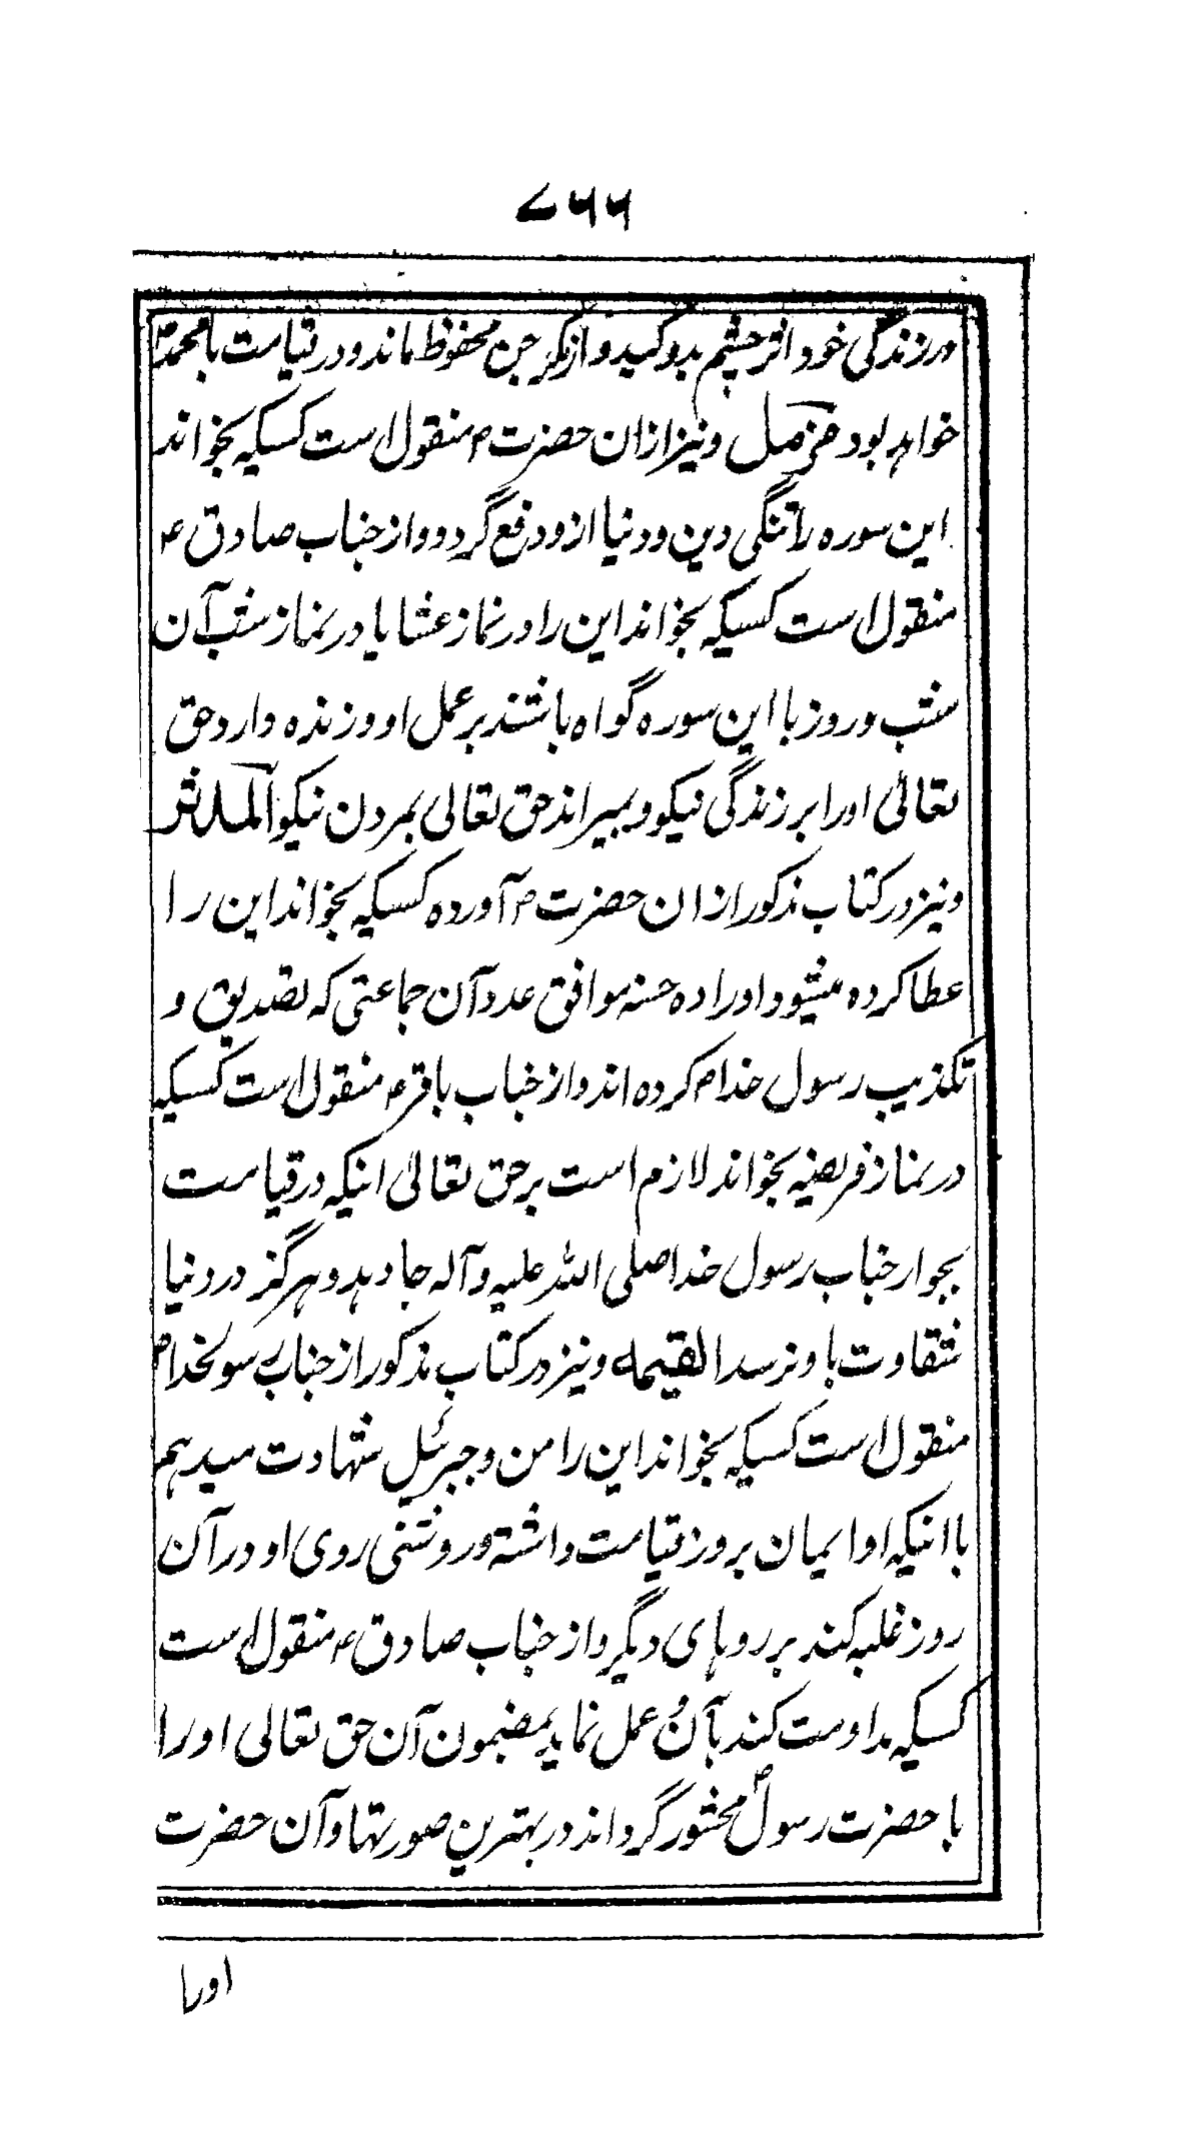 ۷۶۶
در زندگی خود اثر چشم بد و کید و از مکر جن محفوظ ماند و در قیامت با محمدؐ
خواهد بود مزمل و نیز ازان حضرت ؐ منقول است کسیکه بخواند
این سوره را تنگی دین و دنیا ازو دفع گردد و از جناب صادق ؑ
منقول است کسیکه بخواند این را در نماز عشا یا در نماز شب آن
شب و روز با این سوره گواه باشند بر عمل او و زنده دارد حق
تعالی اورا بر زندگی نیکو و بمیراند حق تعالی بمردن نیکو المدثر
و نیز در کتاب مذکور ازان حضرت ؐ آورده کسیکه بخواند این را
عطا کرده میشود اورا ده حسنه موافق عدد آن جماعتی که تصدیق و
تکذیب رسول خدا ؐ کرده اند و از جناب باقر ؑ منقول است کسیکه
در نماز فریضه بخواند لازم است بر حق تعالی اینکه در قیامت
بجوار جناب رسول خدا صلی الله علیه و آله جا دهد و هرگز در دنیا
شقاوت باو نرسد القیمه و نیز در کتاب مذکور از جناب رسولخدا ص
منقول است کسیکه بخواند این را من و جبرئیل شهادت میدهم
با اینکه او ایمان بروز قیامت داشته و روشنی روی او در آن
روز غلبه کند بر روهای دیگر و از جناب صادق ؑ منقول است
کسیکه مداومت کند بآن و عمل نماید بمضمون آن حق تعالی اورا
با حضرت رسول ؐ محشور گرداند در بهترین صورتها و آن حضرت
اورا